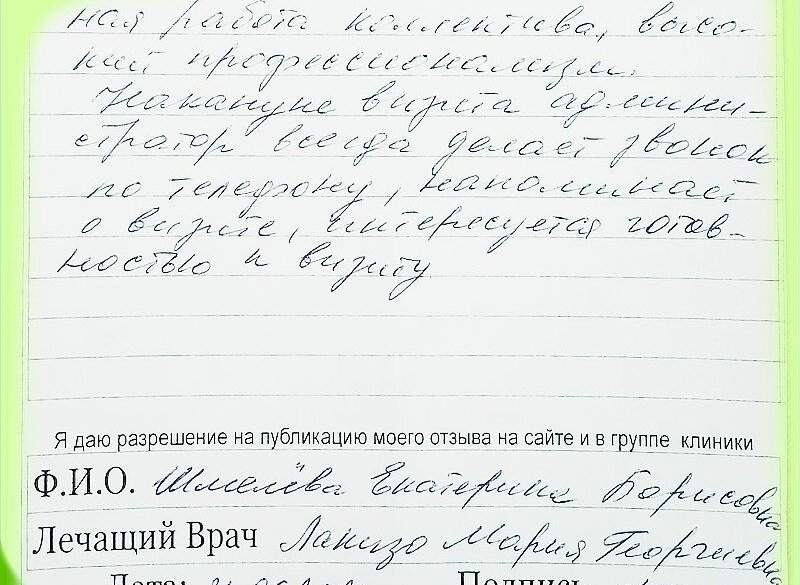 ная работа коллектива, высо-
кий профессионализм.
Накануне визита админи-
стратор всегда делает звонок
по телефону, напоминает
о визите, интересуется готов-
ностью к визиту
Я даю разрешение на публикацию моего отзыва на сайте и в группе клиники
Ф.И.О. Шмелёва Екатерина Борисовна
Лечащий Врач Мария Георгиевна
Дата: Подпись